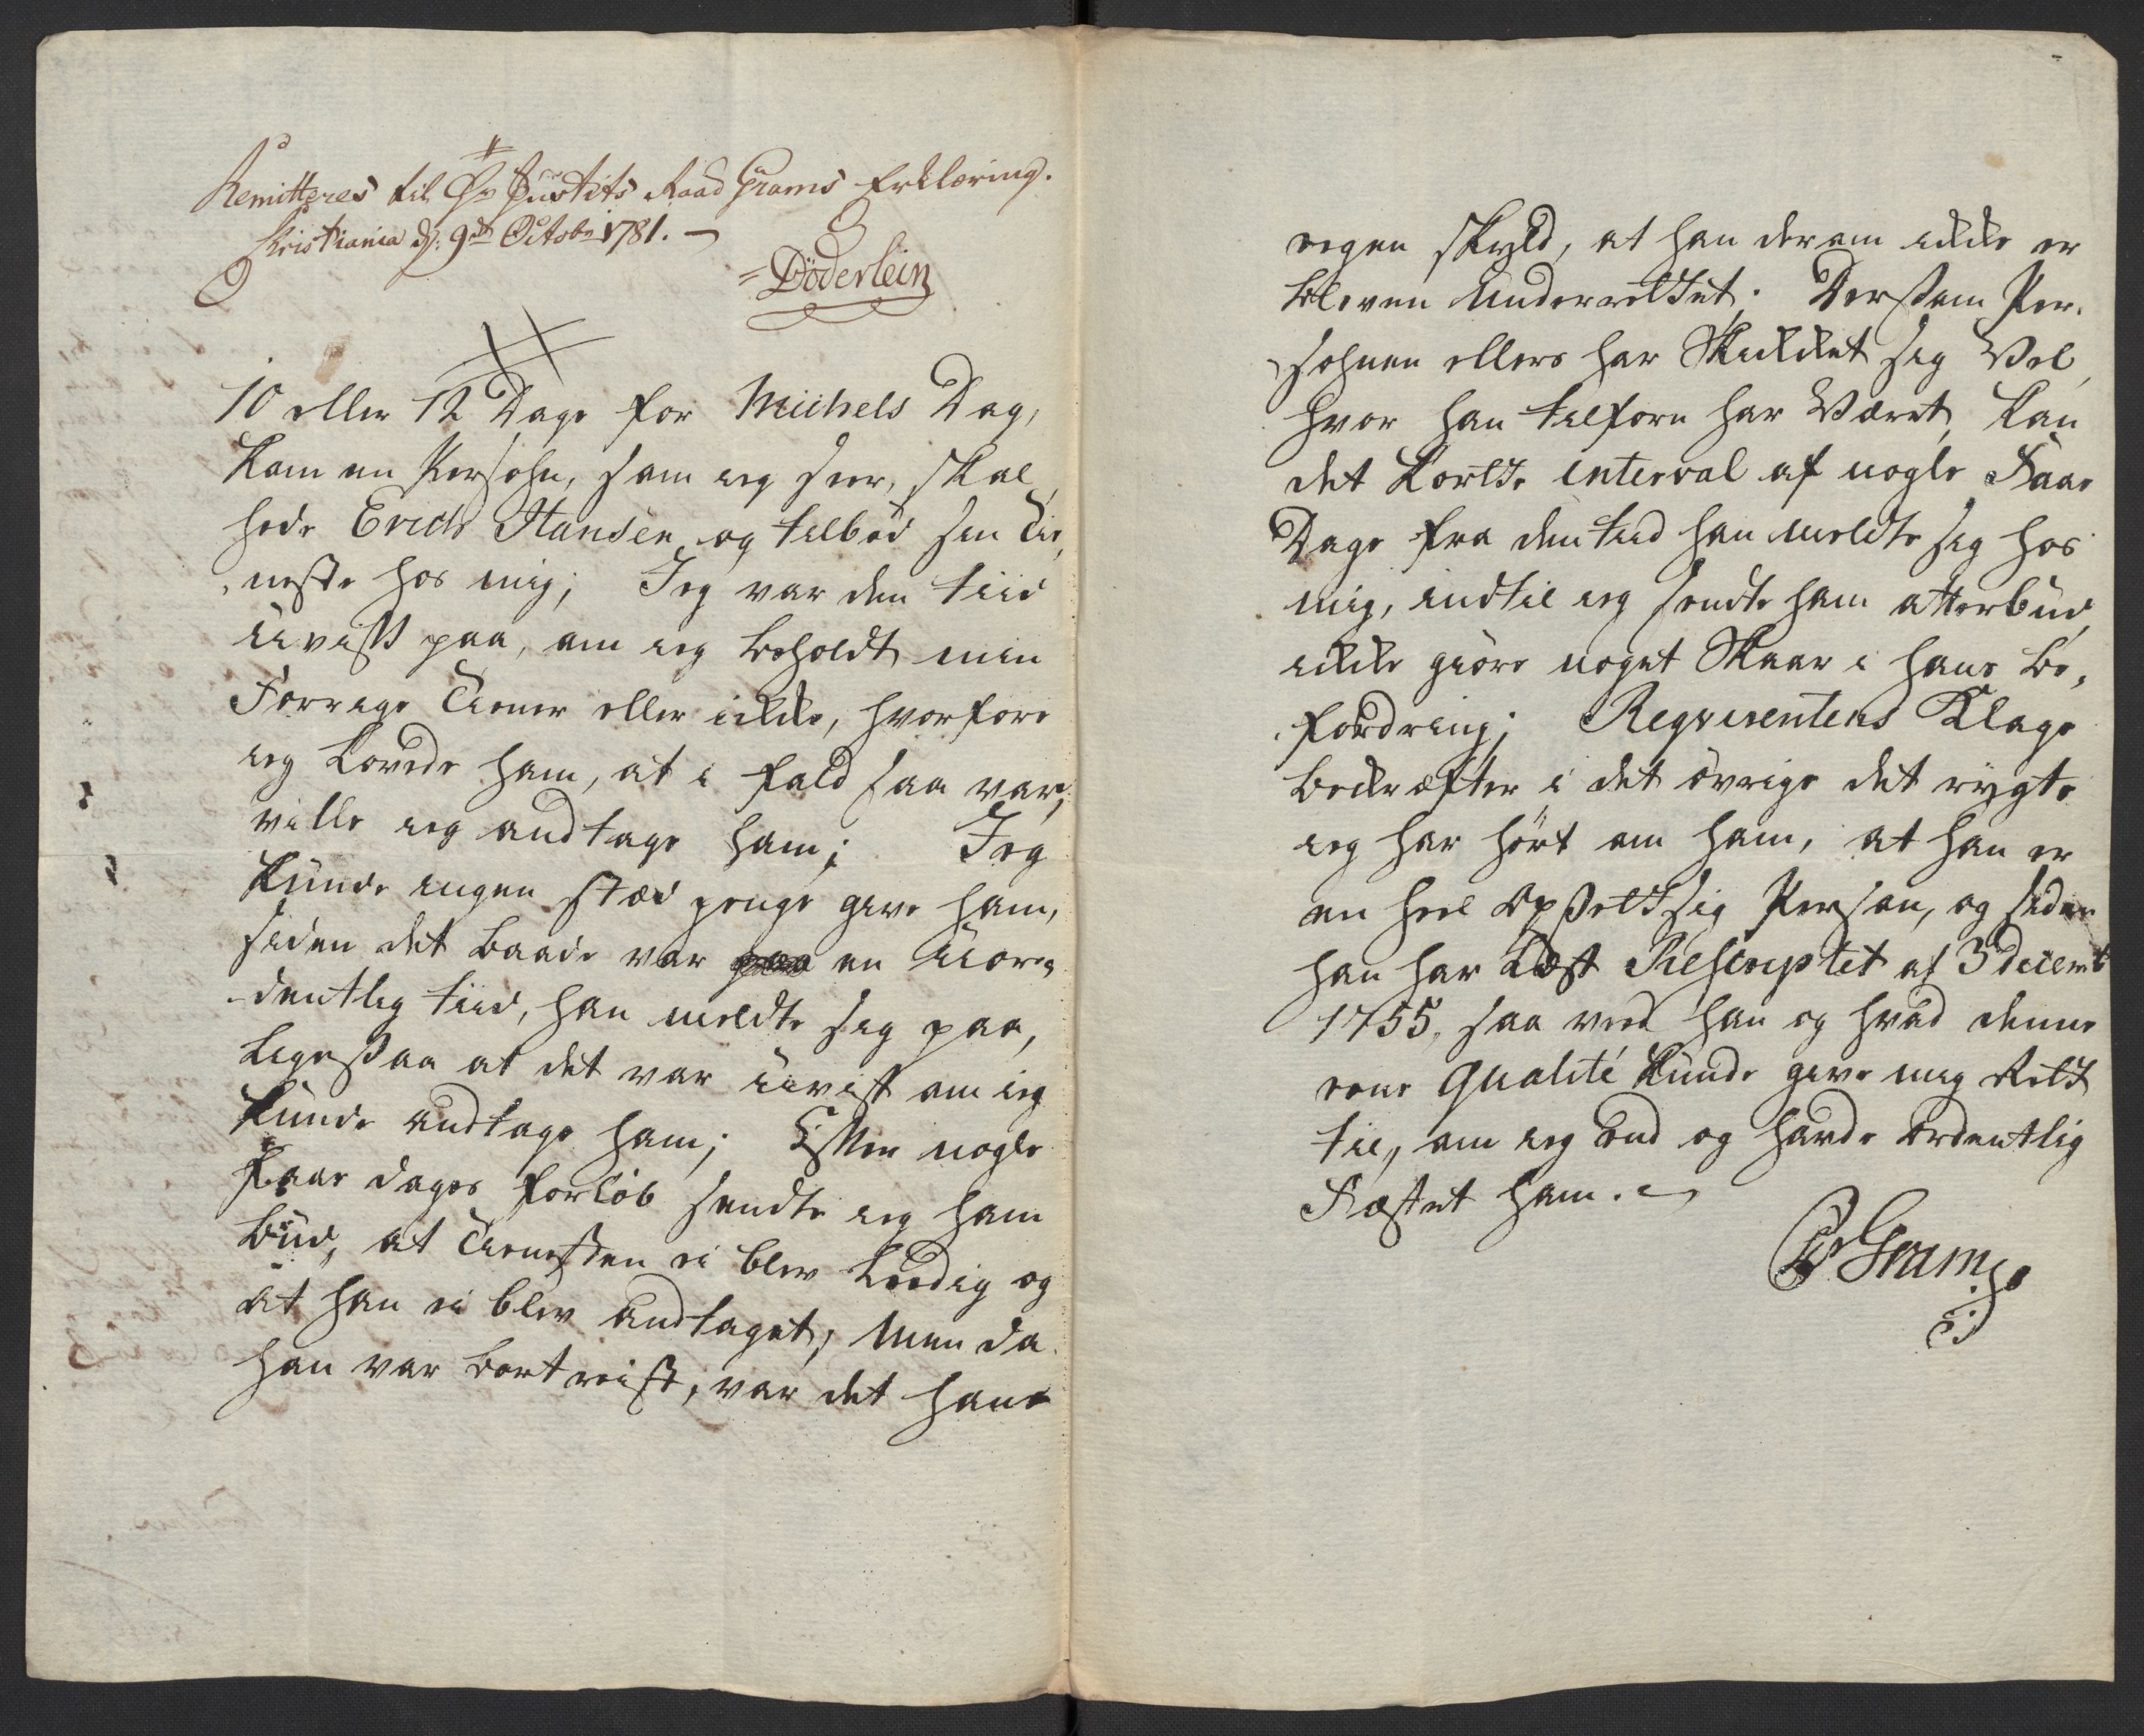 Remitteres til Hr Justits Raad Grams Erklæring.
Christiania d: 9de Octobr 1781.
Döderlein
10 eller 12 Dage for Michels Dag,
kom en Persohn, som ieg seer, skal
hede Erich Hansen og tilbød sin Tie,
neste hos mig; Jeg var den tiid
uvist paa, om ieg beholdt min
Forrige Tiener eller ikke, hvorfore
ieg lovede ham, at i fald saa var,
ville ieg andtage ham; Jeg
kunde ingen stæd penge give ham,
siden det baade var en Uor,
dentlig tiid, han meldte sig paa,
ligesaa at det var uvist om ieg
kunde andtage ham; Efter nogle
Faae dages forløb sendte ieg ham
bud, at Tienesten ei blev Leedig og
at han ei blev andtaget, Men da
han var bort reist, var det hans
eegen skyld, at han derom ikke er
bleven Underrettet. Dersom Per,
sohnen ellers har Skikket sig Vel,
hvor han tilforn har Været, kan
det korte interval af nogle Faae
Dage fra den tiid han meldte sig hos
mig, indtil ieg sendte ham atterbud,
ikke giøre noget Skaar i hans be,
fordring; Reqvirentens Klage
bekræfter i det øvrige det rygte
ieg har hørt om ham, at han er
en heel opsetsig Person, og siden
han har Læst Rescriptet af 3 decembr
1755, saa veed han og hvad denne
eene Qualité kunde give mig Rett
til, om ieg end og havde ordentlig
Fæstet ham.
Gram